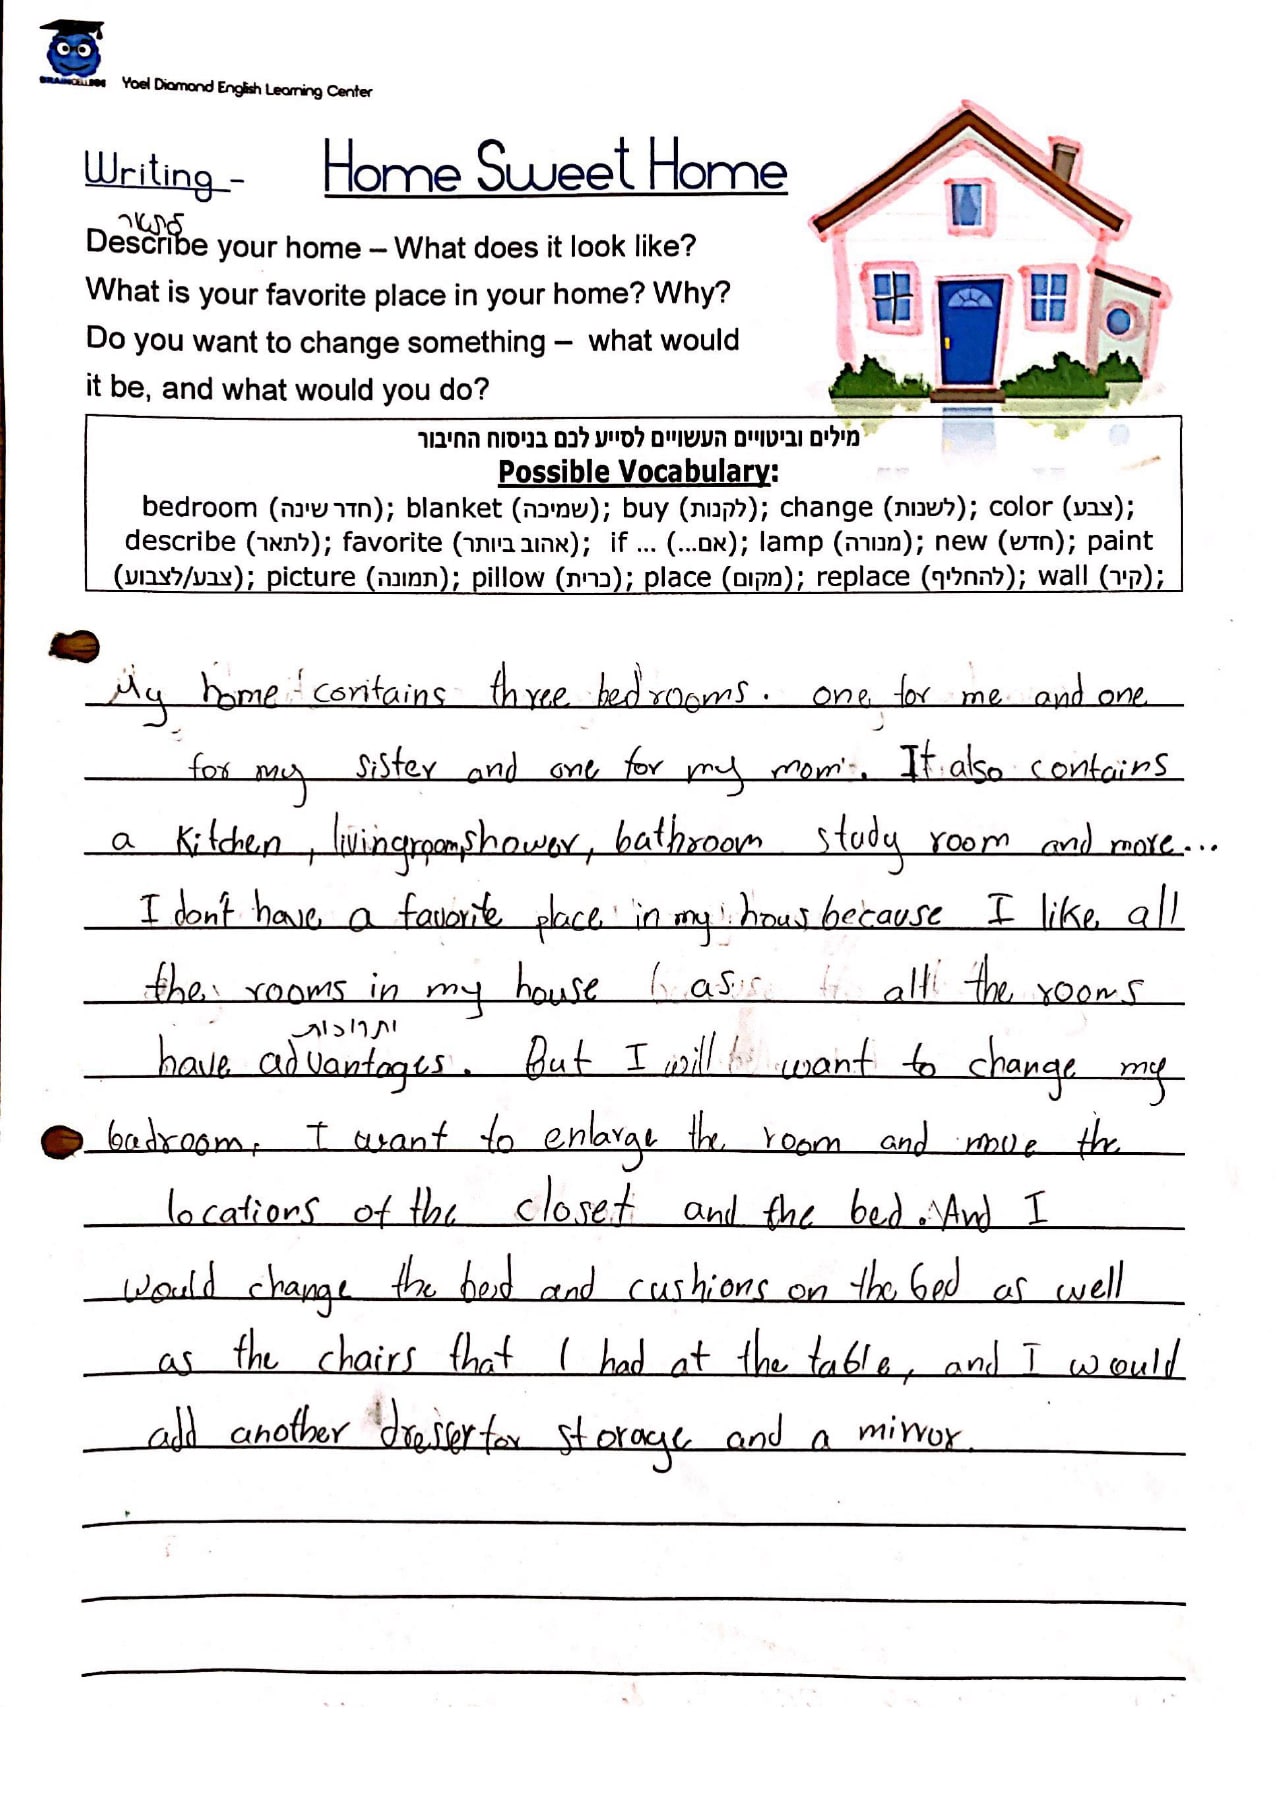 BRAINCELLSOS
Yael Diamond English Learning Center
Writing - Home Sweet Home
לתאר
Describe your home – What does it look like?
What is your favorite place in your home? Why?
Do you want to change something – what would
it be, and what would you do?
מילים וביטויים העשויים לסייע לכם בניסוח החיבור
Possible Vocabulary:
bedroom (חדר שינה); blanket (שמיכה); buy (לקנות); change (לשנות); color (צבע);
describe (לתאר); favorite (אהוב ביותר); if ... (אם...); lamp (מנורה); new (חדש); paint
(צבע/לצבוע); picture (תמונה); pillow (כרית); place (מקום); replace (להחליף); wall (קיר);
My home contains three bedrooms. one for me and one
for my sister and one for my mom. It also contains
a kitchen, livingroom, shower, bathroom study room and more...
I don't have a favorite place in my hous because I like all
the rooms in my house as all the rooms
יתרונות
have advantages. But I will want to change my
badroom, I want to enlarge the room and move the
locations of the closet and the bed. And I
would change the bed and cushions on the bed as well
as the chairs that I had at the table, and I would
add another dresser for storage and a mirror.